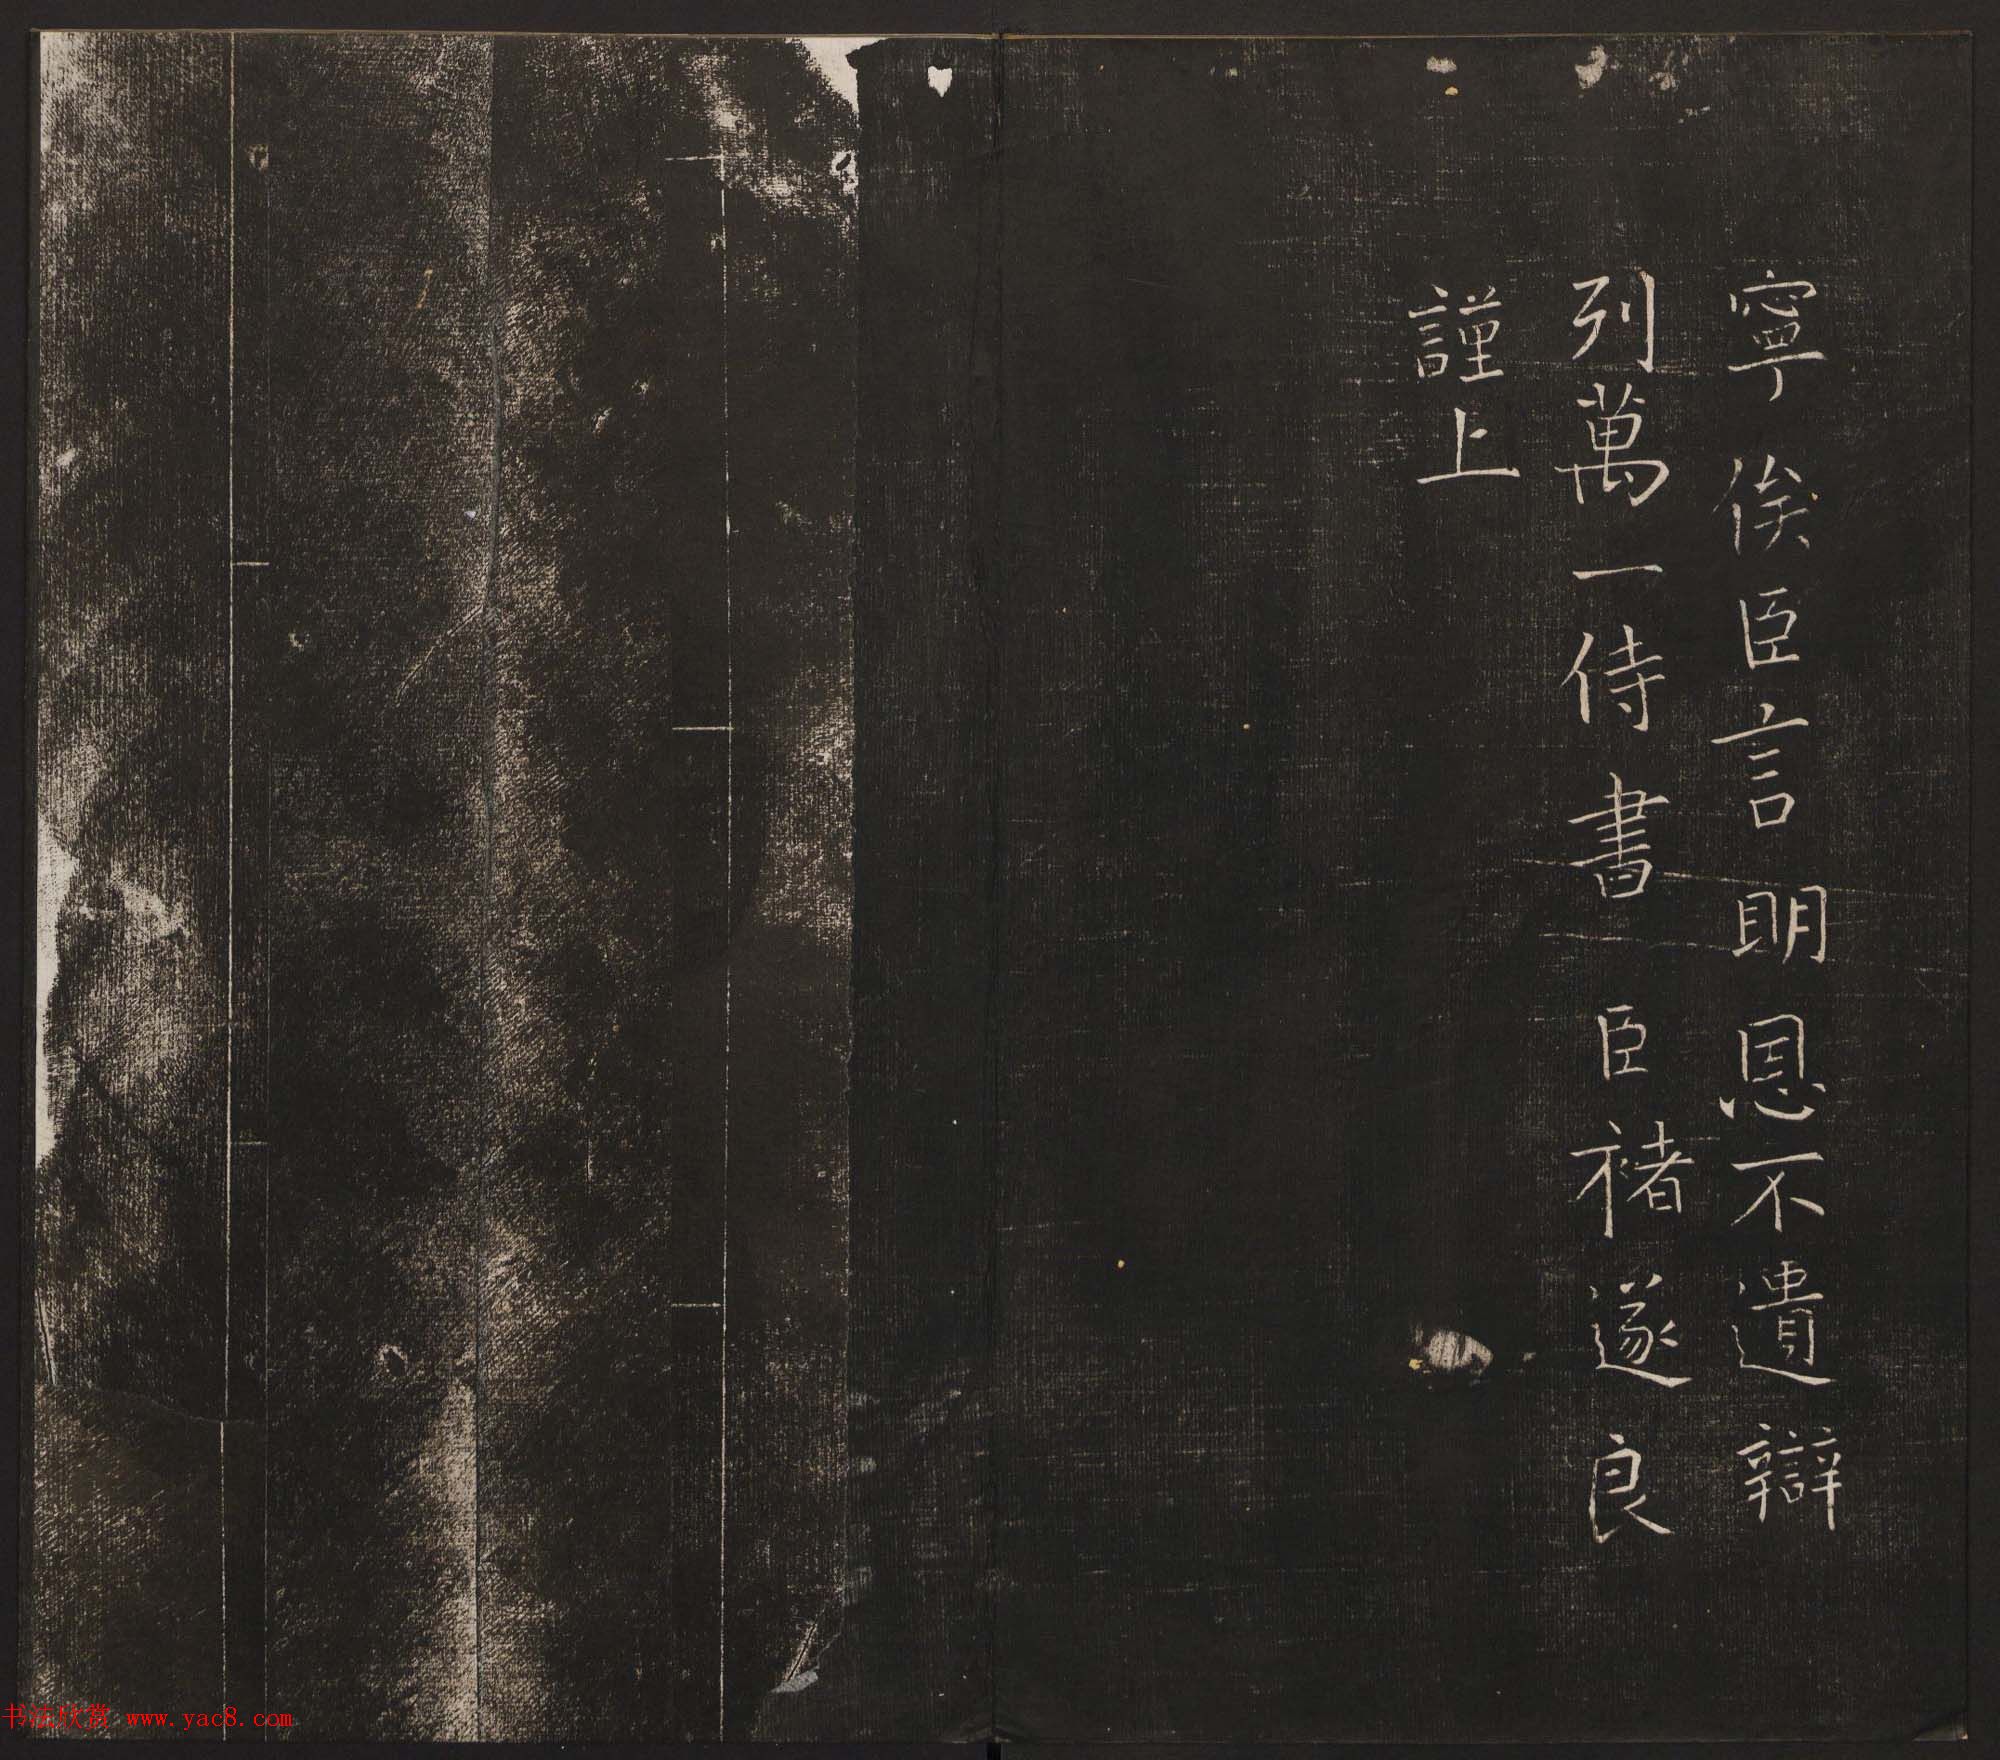 寧俟臣言明恩不遺辯
列萬一侍書臣褚遂良
謹上
书法欣赏 www.yac8.com